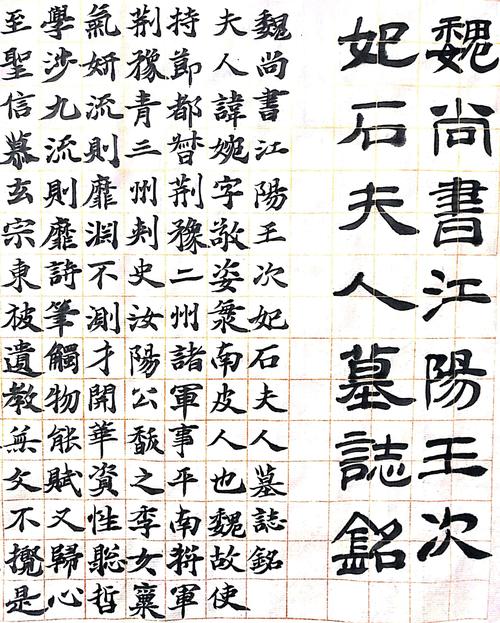 魏尚書江陽王次
妃石夫人墓誌銘
魏尚書江陽王次妃石夫人墓誌銘
夫人諱婉字敬姿南皮人也魏故使
持節都督荊豫二州諸軍事平南將軍
荊豫青三州刾史汝陽公馛之季女稟
氣妍流則靡淵不測才開華資性聡哲
學涉九流則靡詩筆觸物能賦又歸心
至聖信慕玄宗東被遺教無文不攪是